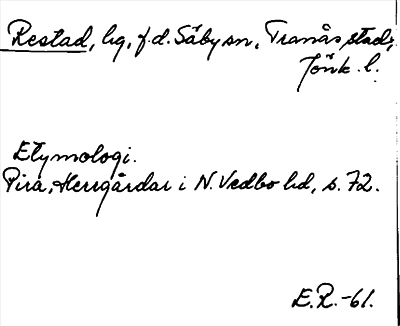 Restad, hg, f.d. Säby sn, Tranås stad,
Jönk. l.
Etymologi.
Pira, Herrgårdar i N. Vedbo hd, s. 72.
E.R. -61.